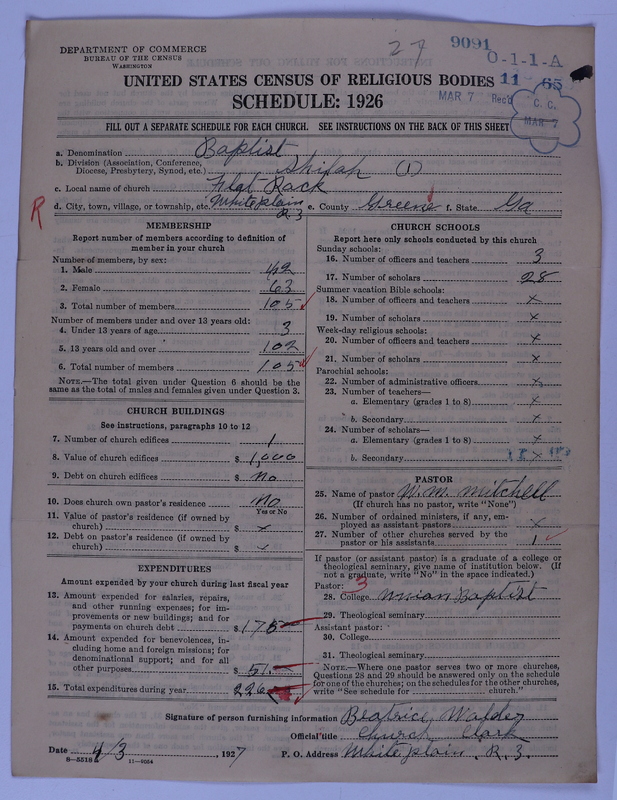 27 9091 0-1-1-A
DEPARTMENT OF COMMERCE
BUREAU OF THE CENSUS
WASHINGTON
UNITED STATES CENSUS OF RELIGIOUS BODIES 11 65
SCHEDULE: 1926 MAR 7 Rec'd C. C. MAR 7
FILL OUT A SEPARATE SCHEDULE FOR EACH CHURCH. SEE INSTRUCTIONS ON THE BACK OF THIS SHEET
a. Denomination Baptist
b. Division (Association, Conference,
Diocese, Presbytery, Synod, etc.) Shilah (1)
c. Local name of church Flat Rack
d. City, town, village, or township, etc. White plain R.3 e. County Greene f. State Ga
R
MEMBERSHIP
Report number of members according to definition of
member in your church
Number of members, by sex:
1. Male 42
2. Female 63
3. Total number of members 105
Number of members under and over 13 years old:
4. Under 13 years of age 3
5. 13 years old and over 102
6. Total number of members 105
NOTE.—The total given under Question 6 should be the
same as the total of males and females given under Question 3.
CHURCH BUILDINGS
See instructions, paragraphs 10 to 12
7. Number of church edifices 1
8. Value of church edifices $ 1,000
9. Debt on church edifices $ No
10. Does church own pastor's residence No
Yes or No
11. Value of pastor's residence (if owned by
church) $ x
12. Debt on pastor's residence (if owned by
church) $
EXPENDITURES
Amount expended by your church during last fiscal year
13. Amount expended for salaries, repairs,
and other running expenses; for im-
provements or new buildings; and for
payments on church debt $ 175
14. Amount expended for benevolences, in-
cluding home and foreign missions; for
denominational support; and for all
other purposes $ 51
15. Total expenditures during year 226
CHURCH SCHOOLS
Report here only schools conducted by this church
Sunday schools:
16. Number of officers and teachers 3
17. Number of scholars 28
Summer vacation Bible schools:
18. Number of officers and teachers x
19. Number of scholars x
Week-day religious schools:
20. Number of officers and teachers x
21. Number of scholars x
Parochial schools:
22. Number of administrative officers x
23. Number of teachers—
a. Elementary (grades 1 to 8) x
b. Secondary x
24. Number of scholars—
a. Elementary (grades 1 to 8) x
b. Secondary x
PASTOR
25. Name of pastor W. M. Mitchell
(If church has no pastor, write "None")
26. Number of ordained ministers, if any, em-
ployed as assistant pastors x
27. Number of other churches served by the
pastor or his assistants 1
If pastor (or assistant pastor) is a graduate of a college or
theological seminary, give name of institution below. (If
not a graduate, write "No" in the space indicated.)
Pastor: 3
28. College Union Baptist
29. Theological seminary
Assistant pastor:
30. College
31. Theological seminary
NOTE.—Where one pastor serves two or more churches,
Questions 28 and 29 should be answered only on the schedule
for one of the churches; on the schedules for the other churches,
write "See schedule for church."
Signature of person furnishing information Beatrice Walder
Official title Church Clark
Date 4/3 1927 P. O. Address White plain, R. 3.
8-5518a 11-9064